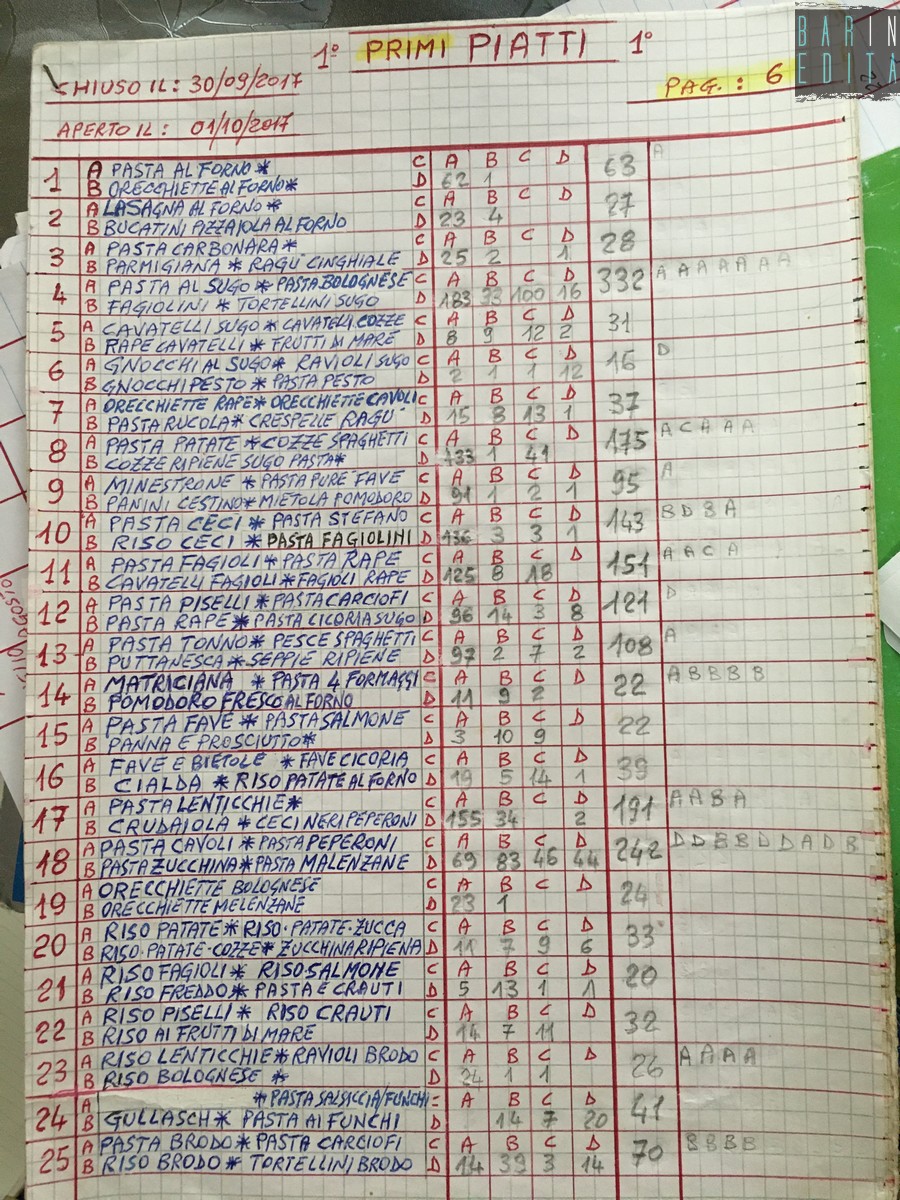 BARIN
EDITÀ
1° PRIMI PIATTI 1°
CHIUSO IL: 30/09/2017
PAG.: 6
APERTO IL: 01/10/2017
1 A PASTA AL FORNO * C A B C D 63 A
B ORECCHIETTE AL FORNO* D 62 1
2 A LASAGNA AL FORNO * C A B C D 27
B BUCATINI PIZZAIOLA AL FORNO D 23 4
3 A PASTA CARBONARA * C A B C D 28
B PARMIGIANA * RAGÙ CINGHIALE D 25 2 1
4 A PASTA AL SUGO * PASTA BOLOGNESE C A B C D 332 A A A A A A A
B FAGIOLINI * TORTELLINI SUGO D 183 33 100 16
5 A CAVATELLI SUGO * CAVATELLI COZZE C A B C D 31
B RAPE CAVATELLI * FRUTTI DI MARE D 8 9 12 2
6 A GNOCCHI AL SUGO * RAVIOLI SUGO C A B C D 16 D
B GNOCCHI PESTO * PASTA PESTO D 2 1 1 12
7 A ORECCHIETTE RAPE * ORECCHIETTE CAVOLI C A B C D 37
B PASTA RUCOLA * CRESPELLE RAGÙ D 15 8 13 1
8 A PASTA PATATE * COZZE SPAGHETTI C A B C D 175 A C A A A
B COZZE RIPIENE SUGO PASTA* D 133 1 41
9 A MINESTRONE * PASTA PURÈ FAVE C A B C D 95 A
B PANINI CESTINO * MIETOLA POMODORO D 91 1 2 1
10 A PASTA CECI * PASTA STEFANO C A B C D 143 B D B A
B RISO CECI * PASTA FAGIOLINI D 136 3 3 1
11 A PASTA FAGIOLI * PASTA RAPE C A B C D 151 A A C A
B CAVATELLI FAGIOLI * FAGIOLI RAPE D 125 8 18
12 A PASTA PISELLI * PASTA CARCIOFI C A B C D 121 D
B PASTA RAPE * PASTA CICORIA SUGO D 96 14 3 8
13 A PASTA TONNO * PESCE SPAGHETTI C A B C D 108 A
B PUTTANESCA * SEPPIE RIPIENE D 97 2 7 2
14 A MATRICIANA * PASTA 4 FORMAGGI C A B C D 22 A B B B B
B POMODORO FRESCO AL FORNO D 11 9 2
15 A PASTA FAVE * PASTA SALMONE C A B C D 22
B PANNA E PROSCIUTTO * D 3 10 9
16 A FAVE E BIETOLE * FAVE CICORIA C A B C D 39
B CIALDA * RISO PATATE AL FORNO D 19 5 14 1
17 A PASTA LENTICCHIE * C A B C D 191 A A B A
B CRUDAIOLA * CECI NERI PEPERONI D 155 34 2
18 A PASTA CAVOLI * PASTA PEPERONI C A B C D 242 D D B B D D A D B
B PASTA ZUCCHINA * PASTA MALENZANE D 69 83 46 44
19 A ORECCHIETTE BOLOGNESE C A B C D 24
B ORECCHIETTE MELENZANE D 23 1
20 A RISO PATATE * RISO·PATATE·ZUCCA C A B C D 33
B RISO·PATATE·COZZE * ZUCCHINA RIPIENA D 11 7 9 6
21 A RISO FAGIOLI * RISO·SALMONE C A B C D 20
B RISO FREDDO * PASTA E CRAUTI D 5 13 1 1
22 A RISO PISELLI * RISO CRAUTI C A B C D 32
B RISO AI FRUTTI DI MARE D 14 7 11
23 A RISO LENTICCHIE * RAVIOLI BRODO C A B C D 26 A A A A
B RISO BOLOGNESE * D 24 1 1
24 A * PASTA SALSICCIA/FUNGHI = A B C D 41
B GULLASCH * PASTA AI FUNCHI D 14 7 20
25 A PASTA BRODO * PASTA CARCIOFI C A B C D 70 B B B B
B RISO BRODO * TORTELLINI BRODO D 14 39 3 14